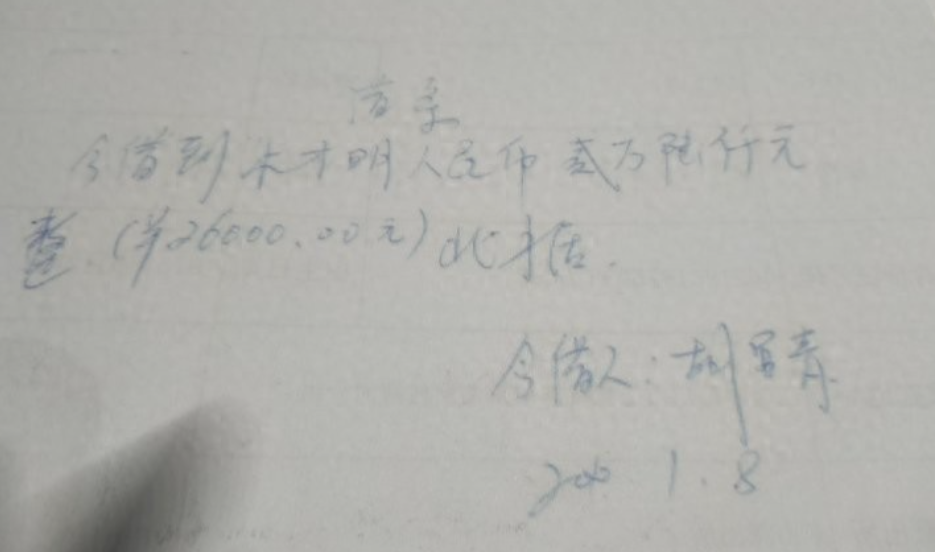 借条
今借到朱才明人民币贰万陆仟元
整.(¥26000.00元)此据.
今借人:胡
1.8